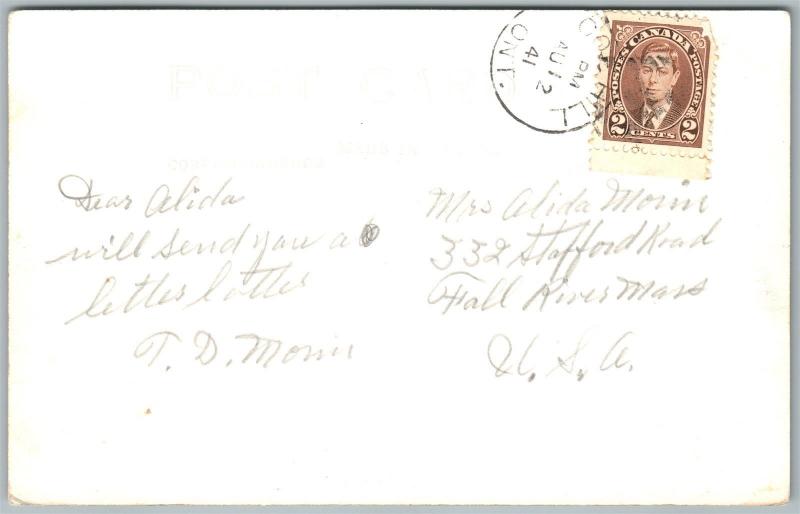 POST CARD
ONT.
PM
AU 12
41
HILL
POSTES CANADA POSTAGE
2 CENTS 2
Dear Alida
will send you a
letter latter
T. D. Morin
Mrs Alida Morin
332 Stafford Road
Fall River Mass
U. S. A.